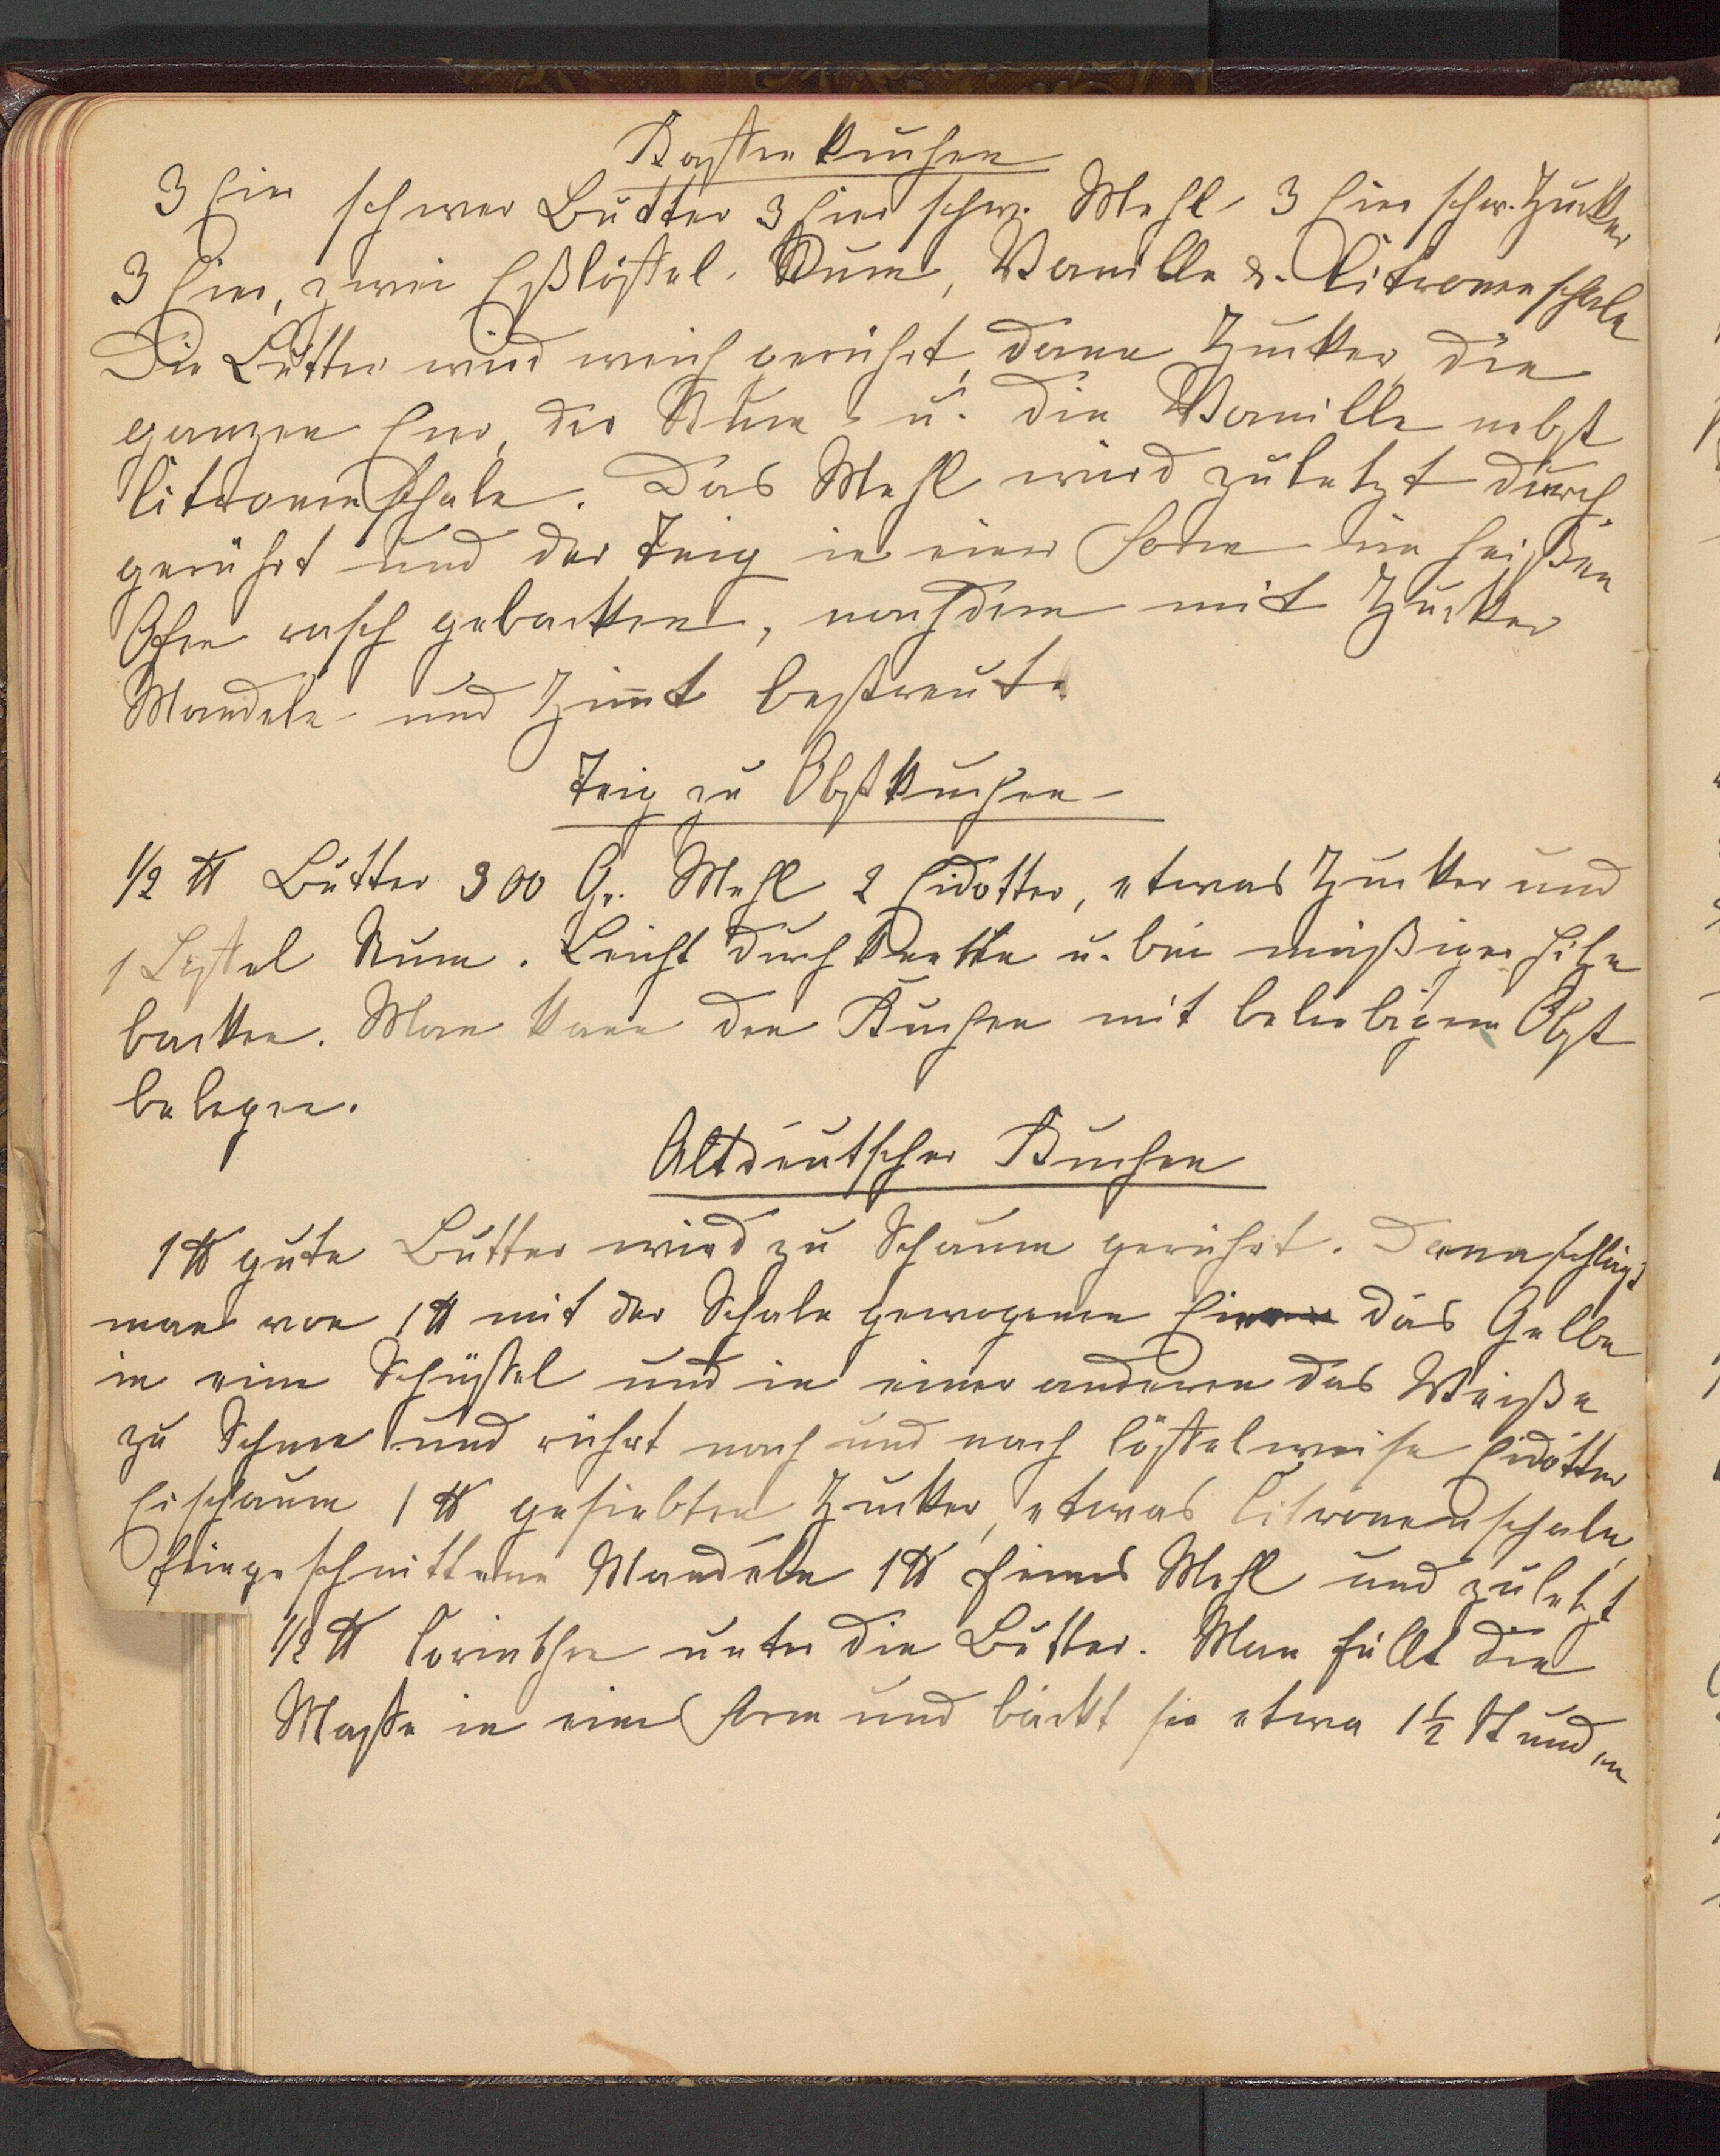 Kastenkuchen
3 Eier schwer Butter 3 Eier schw. Mehl 3 Eier schw. Zucker
3 Eier, zwei Eßlöffel Rum, Vanille u. Citronenschale
Die Butter wird weich gerührt, dann Zucker, die
ganzen Eier, der Rum u. die Vanille nebst
Citronenschale. Das Mehl wird zuletzt durch
gerührt und der Teig in einer Form im heißen
Ofen rasch gebacken, nachdem mit Zucker
Mandeln und Zimt bestreut.
Teig zu Obstkuchen
1/2 ℔ Butter 300 Gr. Mehl 2 Eidotter, etwas Zucker und
1 Löffel Rum. Leicht durchkneten u. bei mäßiger Hitze
backen. Man kann den Kuchen mit beliebigem Obst
belegen.
Altdeutscher Kuchen
1 ℔ gute Butter wird zu Schaum gerührt. Dann schlägt
man von 1 ℔ mit der Schale gewogenen Eier das Gelbe
in eine Schüssel und in einer anderen das Weiße
zu Schnee und rührt nach und nach löffelweise Eidotter
Eischaum 1 ℔ gesiebten Zucker, etwas Citronenschale,
feingeschnittene Mandeln 1 ℔ feines Mehl und zuletzt
1/2 ℔ Corinthen unter die Butter. Man füllt die
Masse in eine Form und bäckt sie etwa 1 1/2 Stunden